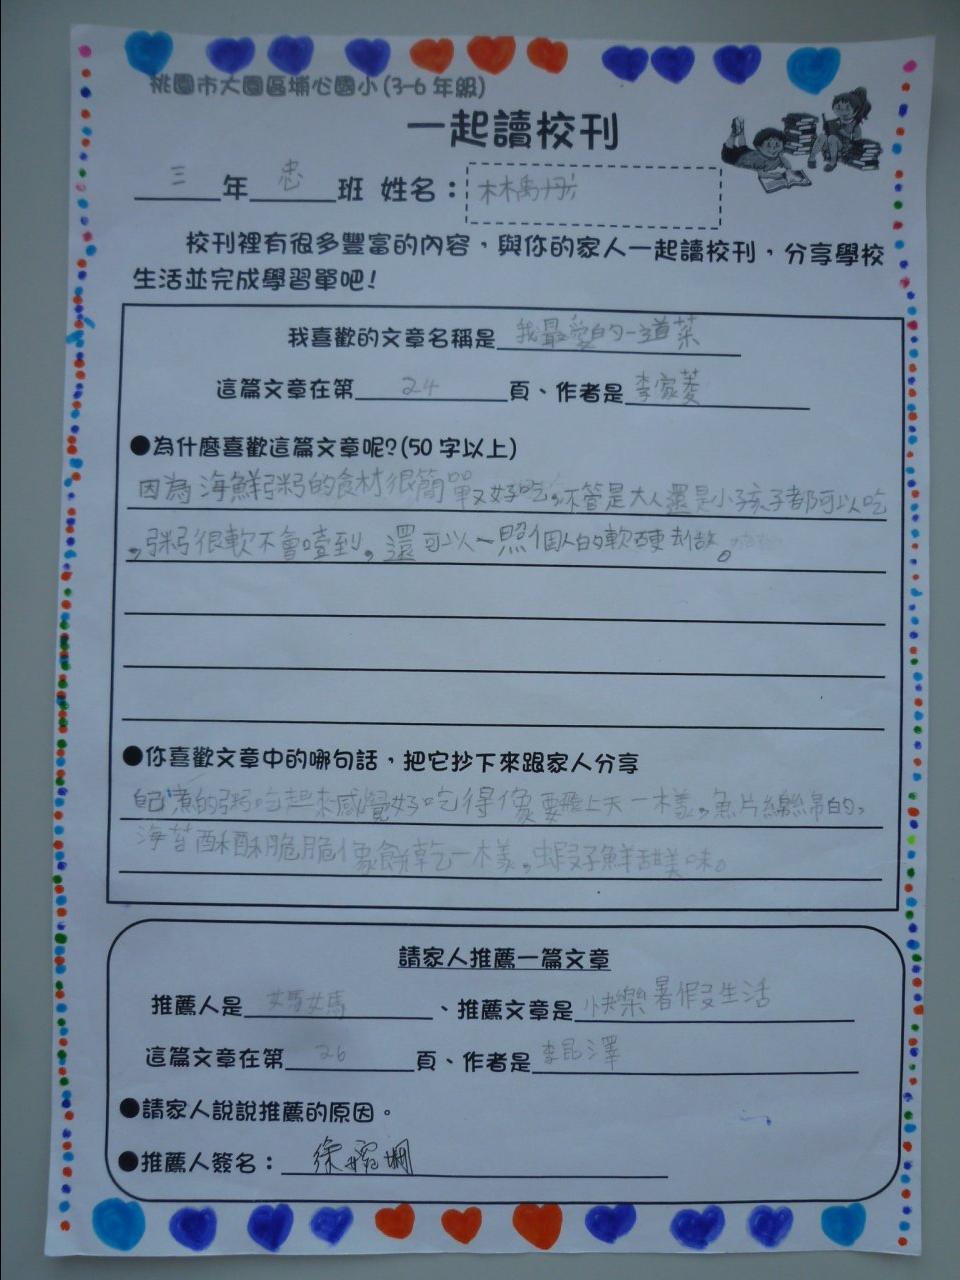 桃園市大園區埔心國小(3-6年級)
一起讀校刊
三年忠班 姓名：林禹彤
校刊裡有很多豐富的內容，與你的家人一起讀校刊，分享學校
生活並完成學習單吧！
我喜歡的文章名稱是我最愛的一道菜
這篇文章在第24頁、作者是李家菱
●為什麼喜歡這篇文章呢?(50字以上)
因為海鮮粥的食材很簡單又好吃，不管是大人還是小孩子都可以吃
，粥很軟不會噎到，還可以一照個人的軟硬去做。
●你喜歡文章中的哪句話，把它抄下來跟家人分享
自己煮的粥吃起來感覺好吃得像要飛上天一樣，魚片綿綿的，
海苔酥酥脆脆像餅乾一樣，蝦子鮮甜美味。
請家人推薦一篇文章
推薦人是媽媽、推薦文章是快樂暑假生活
這篇文章在第26頁、作者是李昆澤
●請家人說說推薦的原因。
●推薦人簽名：徐